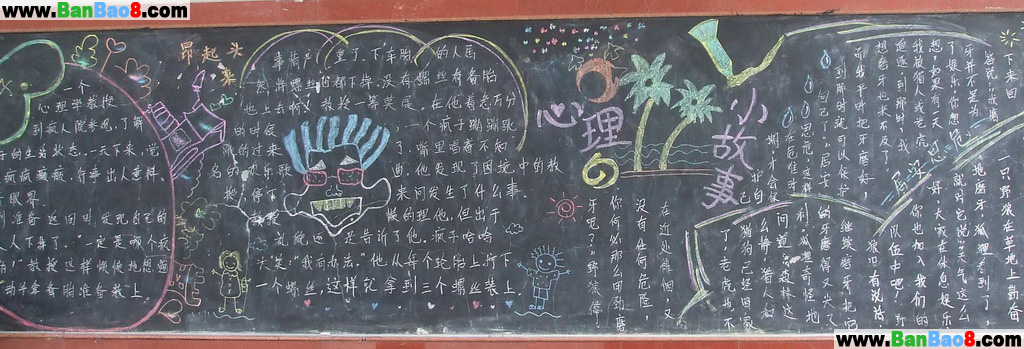 www.BanBao8.com
www.BanBao8.com
www.BanBao8.com
www.BanBao8.com
昂起头
心理
小故事
一个
心理学教授
到疯人院参观，了解
的生活状态。一天下来，觉
疯疯癫癫，行事出人意料，
眼界。
准备返回时，发现自己的
人下掉了。“一定是哪个疯
教授这样愤愤地想道
动手拿备胎准备装上。
事情严重了。下车胎的人居
然将螺丝也都下掉。没有螺丝有备胎
也上不去啊！教授一筹莫展。在他着急万分
的时候，一个疯子蹦蹦跳
跳的过来了，嘴里唱着不知
名的欢乐歌曲。他发现了困境中的教
授，停下来问发生了什么事。
懒的理他，但出于
礼貌还是告诉了他。疯子哈哈
大笑：“我有办法！”他从每个轮胎上拧下
一个螺丝，这样就拿到三个螺丝装上
一只野狼卧在草地上勤奋
地磨牙，狐狸看到了，
就对它说：“天气这么
好，大家在休息娱乐，
你也加入我们的
队伍中吧！”野
狼没有说话，
继续磨牙，把它
的牙磨得又尖又
利。狐狸奇怪地
问道：“森林这
么静，猎人和
猎狗已经回家
了，老虎也不
在近处徘徊，又
没有任何危险，
你何必那么用劲磨
牙呢？”野狼停
下来回
答说：“我磨
牙并不是为
了娱乐，你想
想，如果有一天
我被猎人或老虎
追逐，到那时，我
想磨牙也来不及了。
而平时我把牙磨好，
到那时就可以保护
自己了。”